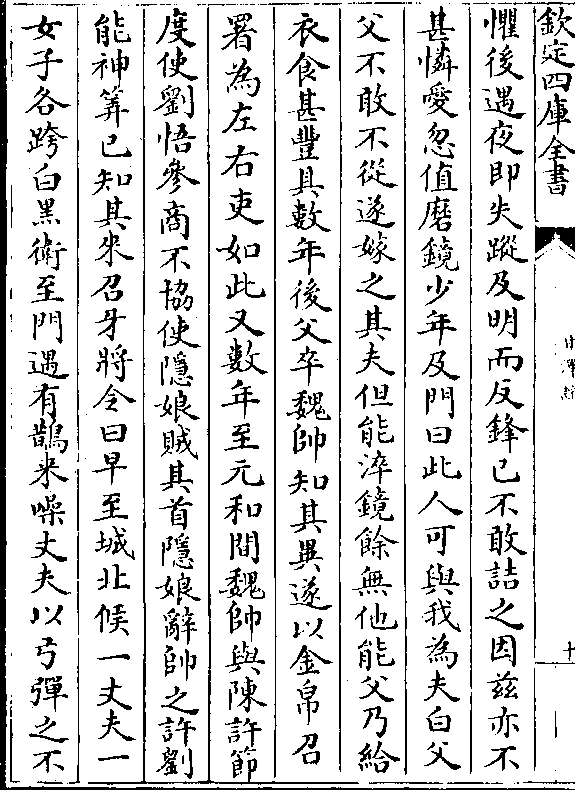 欽定四庫全書
懼後遇夜即失蹤及明而反鋒已不敢詰之因兹亦不
甚憐愛忽值磨鏡少年及門曰此人可與我為夫白父
父不敢不從遂嫁之其夫但能淬鏡餘無他能父乃給
衣食甚豐具數年後父卒魏帥知其異遂以金帛召
署為左右吏如此又數年至元和間魏帥與陳許節
度使劉悟參商不協使隱娘賊其首隱娘辭帥之許劉
能神筭已知其來召牙將令曰早至城北候一丈夫一
女子各跨白黑衛至門遇有鵲来噪丈夫以弓彈之不